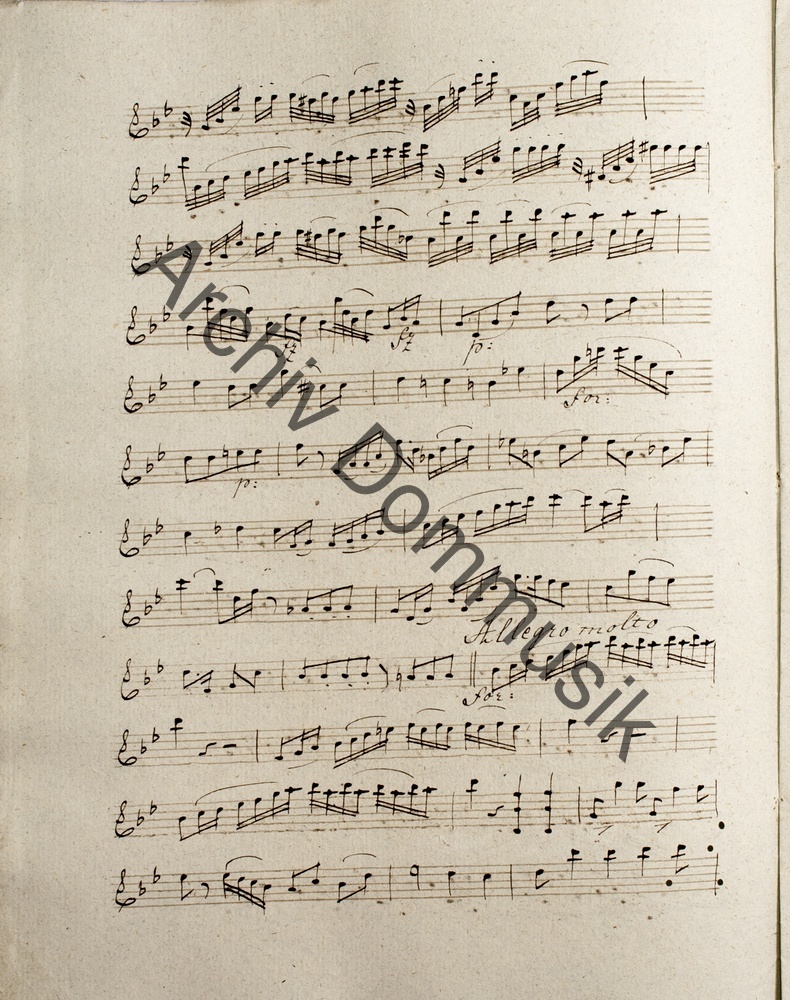 Archiv Dommusik
fz fz p:
for:
p:
Allegro molto
for: